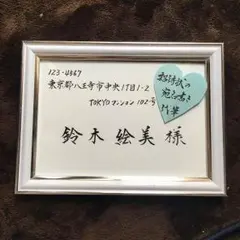 123-4567
東京都八王寺市中央1丁目1-2
TOKYOマンション102号
鈴木絵美様
招待状の
宛名書き
代筆